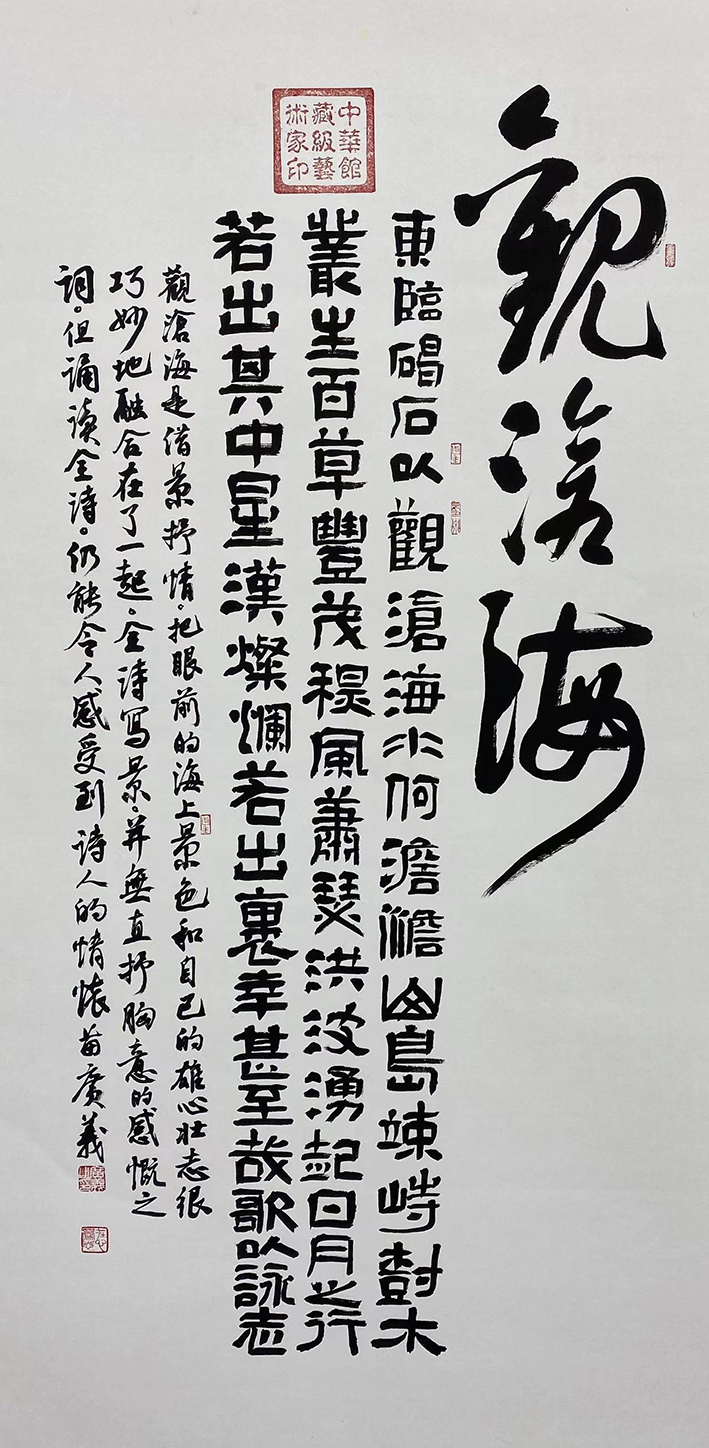 觀滄海
中華館
藏級藝
術家印
東臨碣石以觀滄海水何澹澹山島竦峙樹木
叢生百草豐茂秋風蕭瑟洪波湧起日月之行
若出其中星漢燦爛若出裏幸甚至哉歌以詠志
觀滄海是借景抒情。把眼前的海上景色和自己的雄心壮志很
巧妙地融合在了一起。全诗寫景。并無直抒胸意的感慨之
词。但诵读全诗。仍能令人感受到诗人的情懷苗廣義